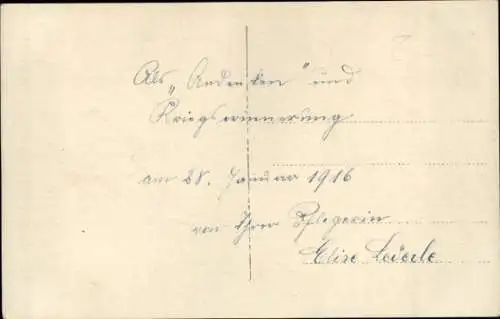 Als „Andenken" und
Kriegserinnerung
am 28. Januar 1916
von Ihrer Pflegerin
Elise Lederle